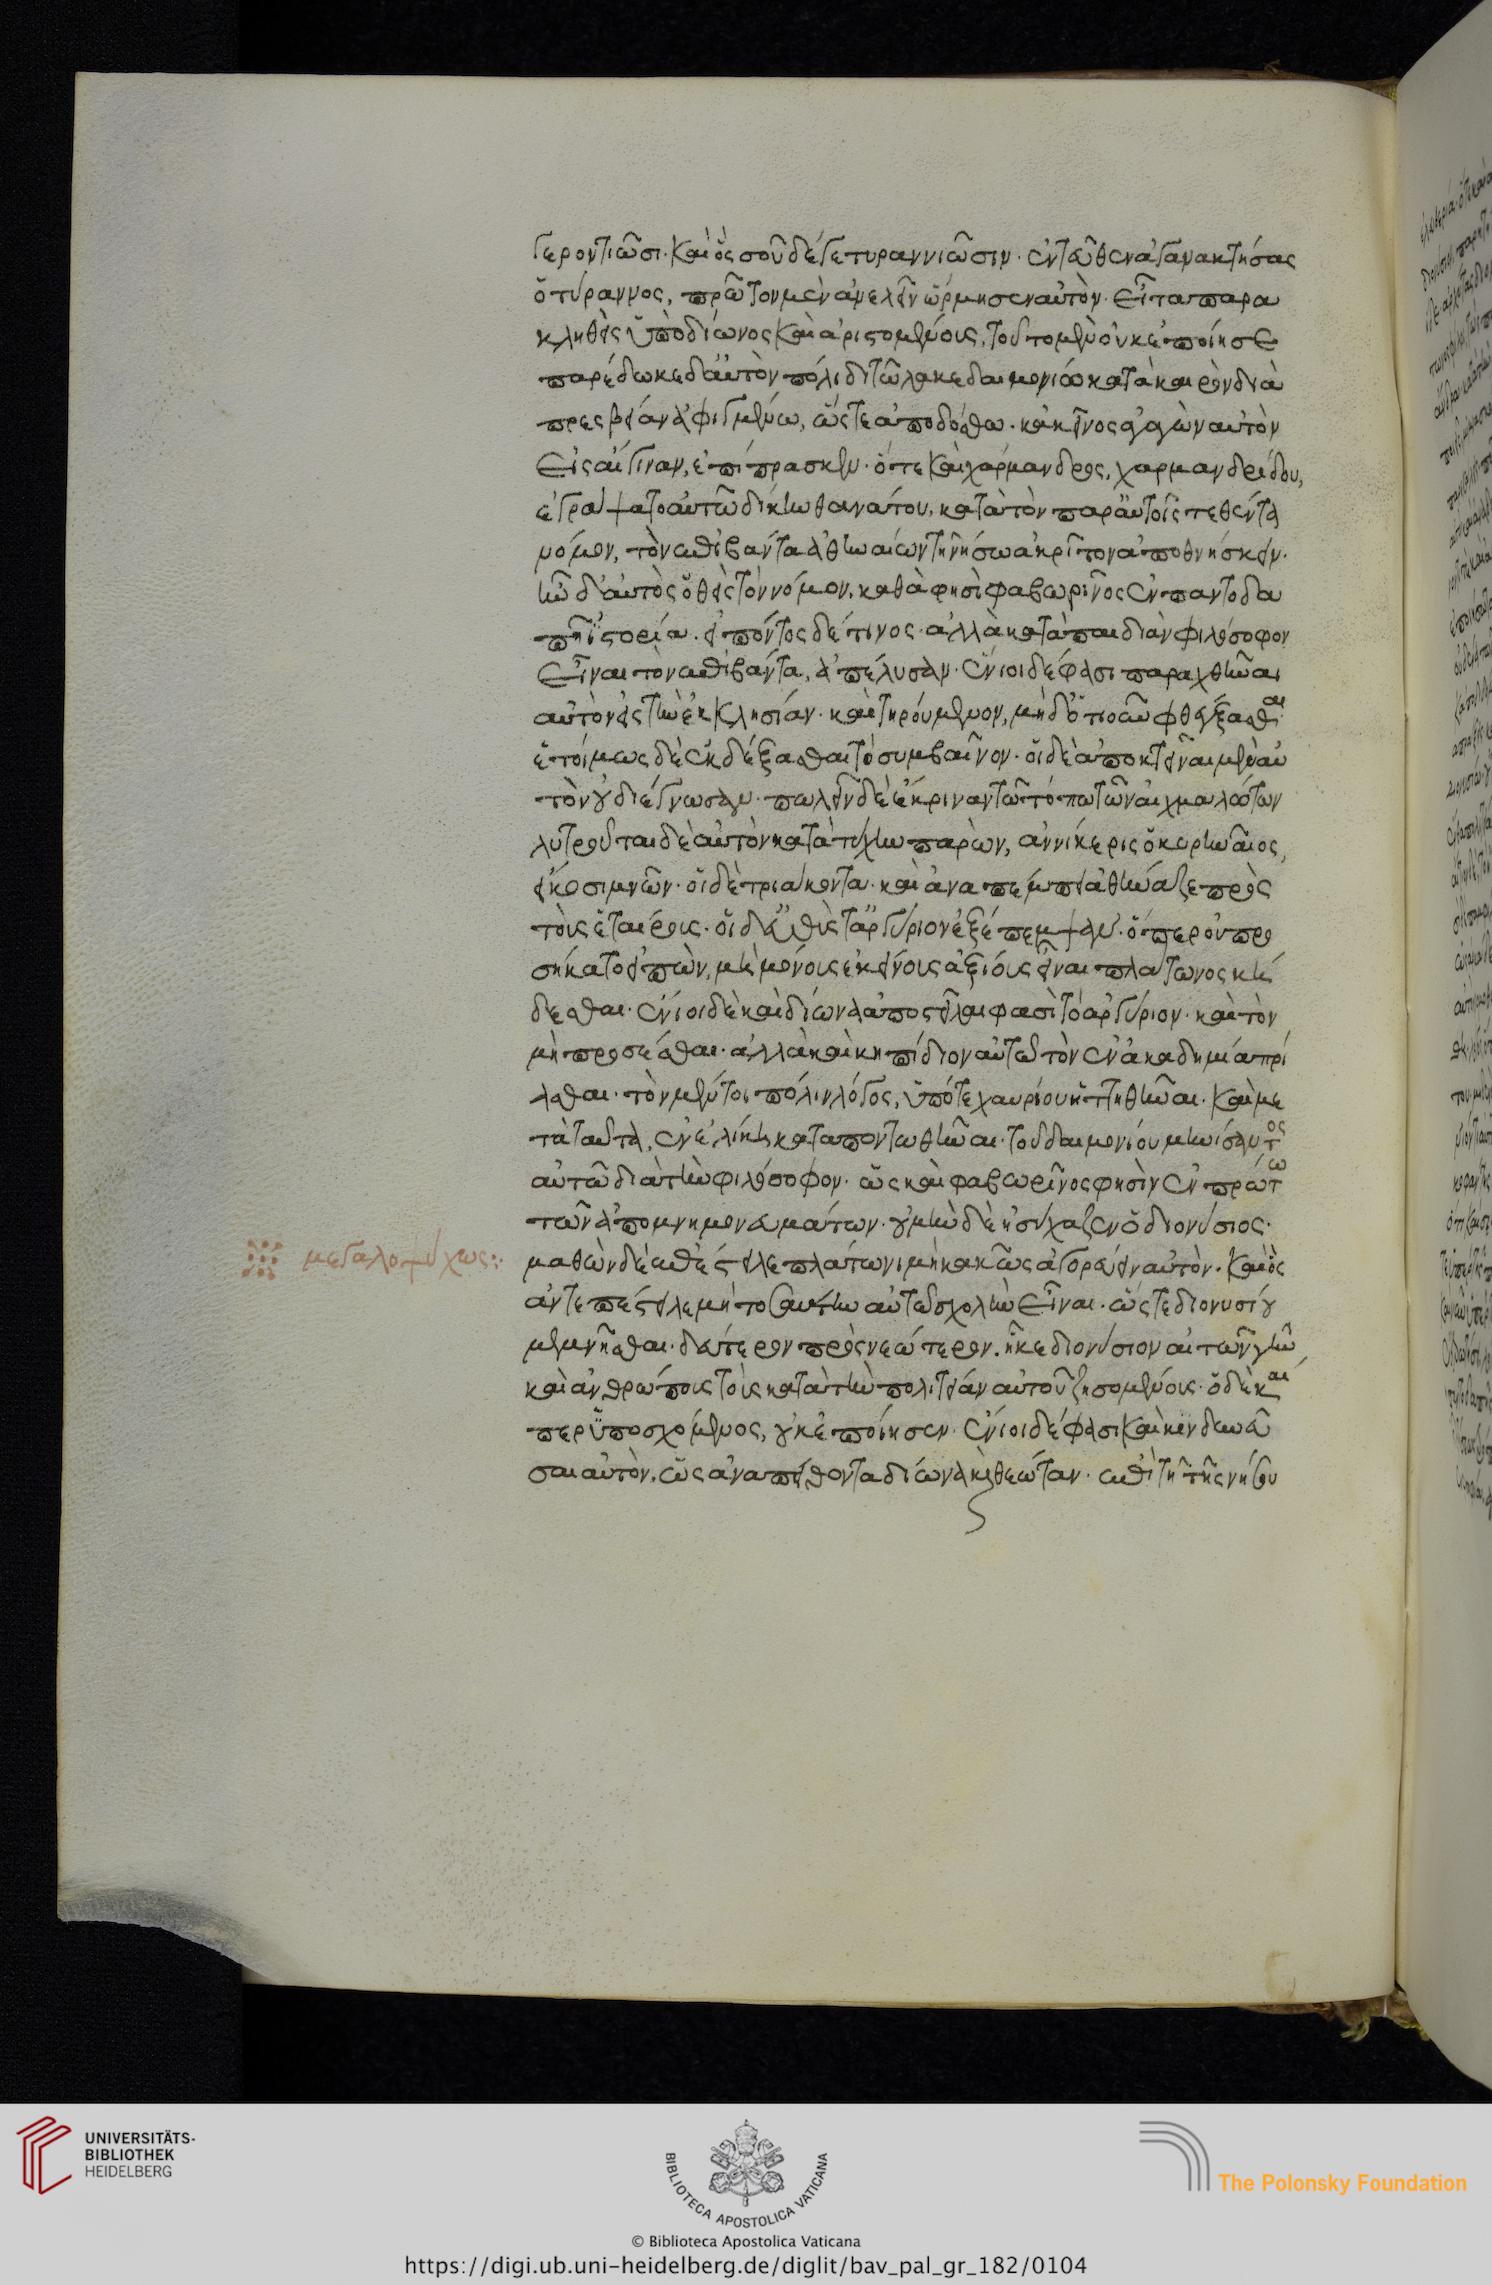 γεροντιῶσι. καὶ ὃς σοῦ δέ γε τυραννιῶσιν. ἐνταῦθεν ἀγανακτήσας
ὁ τύραννος, πρῶτον μὲν ἀνελεῖν ὥρμησεν αὐτὸν. εἶτα παρα
κληθεὶς ὑπὸ δίωνος καὶ ἀριστομένους, τοῦτο μὲν οὐκ ἐποίησε
παρέδωκε δ᾽ αὐτὸν πόλιδι τῶ λακεδαιμονίω κατὰ καιρὸν διὰ
πρεσβείαν ἀφιγμένω, ὥστε ἀποδόσθαι. κἀκεῖνος ἀγαγὼν αὐτὸν
εἰς αἴγιναν, ἐπίπρασκεν. ὅτε καὶ χάρμανδρος, χαρμανδρίδου,
ἐγράψατο αὐτῶ δίκην θανάτου, κατὰ τὸν παρ᾽ αὐτοῖς τεθέντα
νόμον, τὸν ἐπιβάντα ἀθηναίων τῆ νήσω ἀκρῖτον ἀποθνήσκειν.
ἦν δ᾽ αὐτὸς ὁ θεὶς τὸν νόμον, καθὰ φησὶ φαβωρῖνος ἐν παντοδα
πῆ ἱστορία. εἰπόντος δέ τινος. ἀλλὰ κατὰ παιδιὰν φιλόσοφον
εἶναι τὸν ἐπιβάντα, ἀπέλυσαν. ἔνιοι δέ φασι παραχθῆναι
αὐτὸν εἰς τὴν ἐκκλησίαν. καὶ τηρούμενον, μηδ᾽ ὁτιοῦν φθέγξασθαι
ἑτοίμως δὲ ἐκδέξασθαι τὸ συμβαῖνον. οἱ δὲ ἀποκτεῖναι μὲν αὐ
τὸν οὐ διέγνωσαν. πωλεῖν δὲ ἔκριναν τῶ τόπω τῶν αἰχμαλώτων
λυτροῦται δὲ αὐτὸν κατὰ τύχην παρὼν, ἀννίκερις ὁ κυρηναῖος,
εἴκοσι μνῶν. οἱ δὲ τριάκοντα. καὶ ἀναπέμπει ἀθήναζε πρὸς
τοὺς ἑταίρους. οἱ δ᾽ εὐθὺς τἀργύριον ἐξέπεμψαν. ὅπερ οὐ προ
σήκατο εἰπὼν, μὴ μόνους ἐκείνους ἀξίους εἶναι πλάτωνος κή
δεσθαι. ἔνιοι δὲ καὶ δίωνα ἀποστεῖλαι φασὶ τὸ ἀργύριον. καὶ τὸν
μὴ προσέσθαι. ἀλλὰ καὶ κηπίδιον αὐτῶ τὸν ἐν ἀκαδημία πρί
ασθαι. τὸν μέντοι πόλιν λόγος, ὑπό τε χαυρίου ἡττηθῆναι. καὶ με
τὰ ταῦτα, ἐν ἑλίκη καταποντωθῆναι. τοῦ δαιμονίου μηνίσαντος
αὐτῶ διὰ τὴν φιλόσοφον. ὡς καὶ φαβωρῖνος φησὶν ἐν πρώτω
τῶν ἀπομνημονευμάτων. οὐ μὴν δὲ ἡσύχαζεν ὁ διονύσιος.
μεγαλοψύχως:
μαθὼν δὲ ἐπέστειλε πλάτωνι μὴ κακῶς ἀγορεύειν αὐτὸν. καὶ ὃς
ἀντεπέστειλε μὴ τοσαύτην αὐτῶ σχολὴν εἶναι. ὥστε διονυσίου
μεμνῆσθαι. δεύτερον πρὸς νεώτερον. ἧκε διονύσιον αἰτῶν γῆν
καὶ ἀνθρώπους τοὺς κατὰ τὴν πολιτείαν αὐτοῦ ζησομένους. ὁ δὲ καί
περ ὑποσχόμενος, οὐκ ἐποίησεν. ἔνιοι δέ φασι καὶ κινδυνεῦ
σαι αὐτὸν, ὡς ἀναπείθοντα δίωνα καὶ θεώταν. ἐπὶ τῆ τῆς νήσου
UNIVERSITÄTS-
BIBLIOTHEK
HEIDELBERG
BIBLIOTECA APOSTOLICA VATICANA
The Polonsky Foundation
© Biblioteca Apostolica Vaticana
https://digi.ub.uni-heidelberg.de/diglit/bav_pal_gr_182/0104